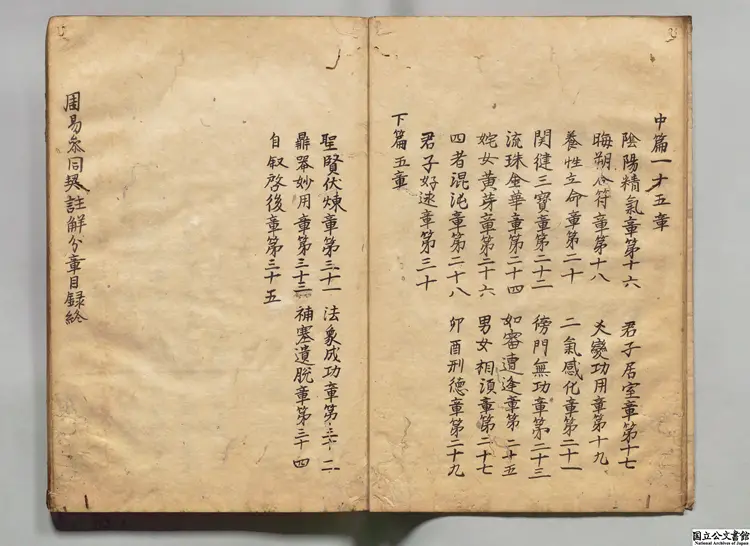 中篇一十五章
陰陽精氣章第十六 君子居室章第十七
晦朔合符章第十八 爻變功用章第十九
養性立命章第二十 二氣感化章第二十一
関鍵三寶章第二十二 傍門無功章第二十三
流珠金華章第二十四 如審遭逢章第二十五
姹女黃芽章第二十六 男女相須章第二十七
四者混沌章第二十八 卯酉刑德章第二十九
君子好逑章第三十
下篇五章
聖賢伏煉章第三十一 法象成功章第三十二
鼎器妙用章第三十三 補塞遺脫章第三十四
自叙啓後章第三十五
周易参同契註解分章目録終
国立公文書館
National Archives of Japan